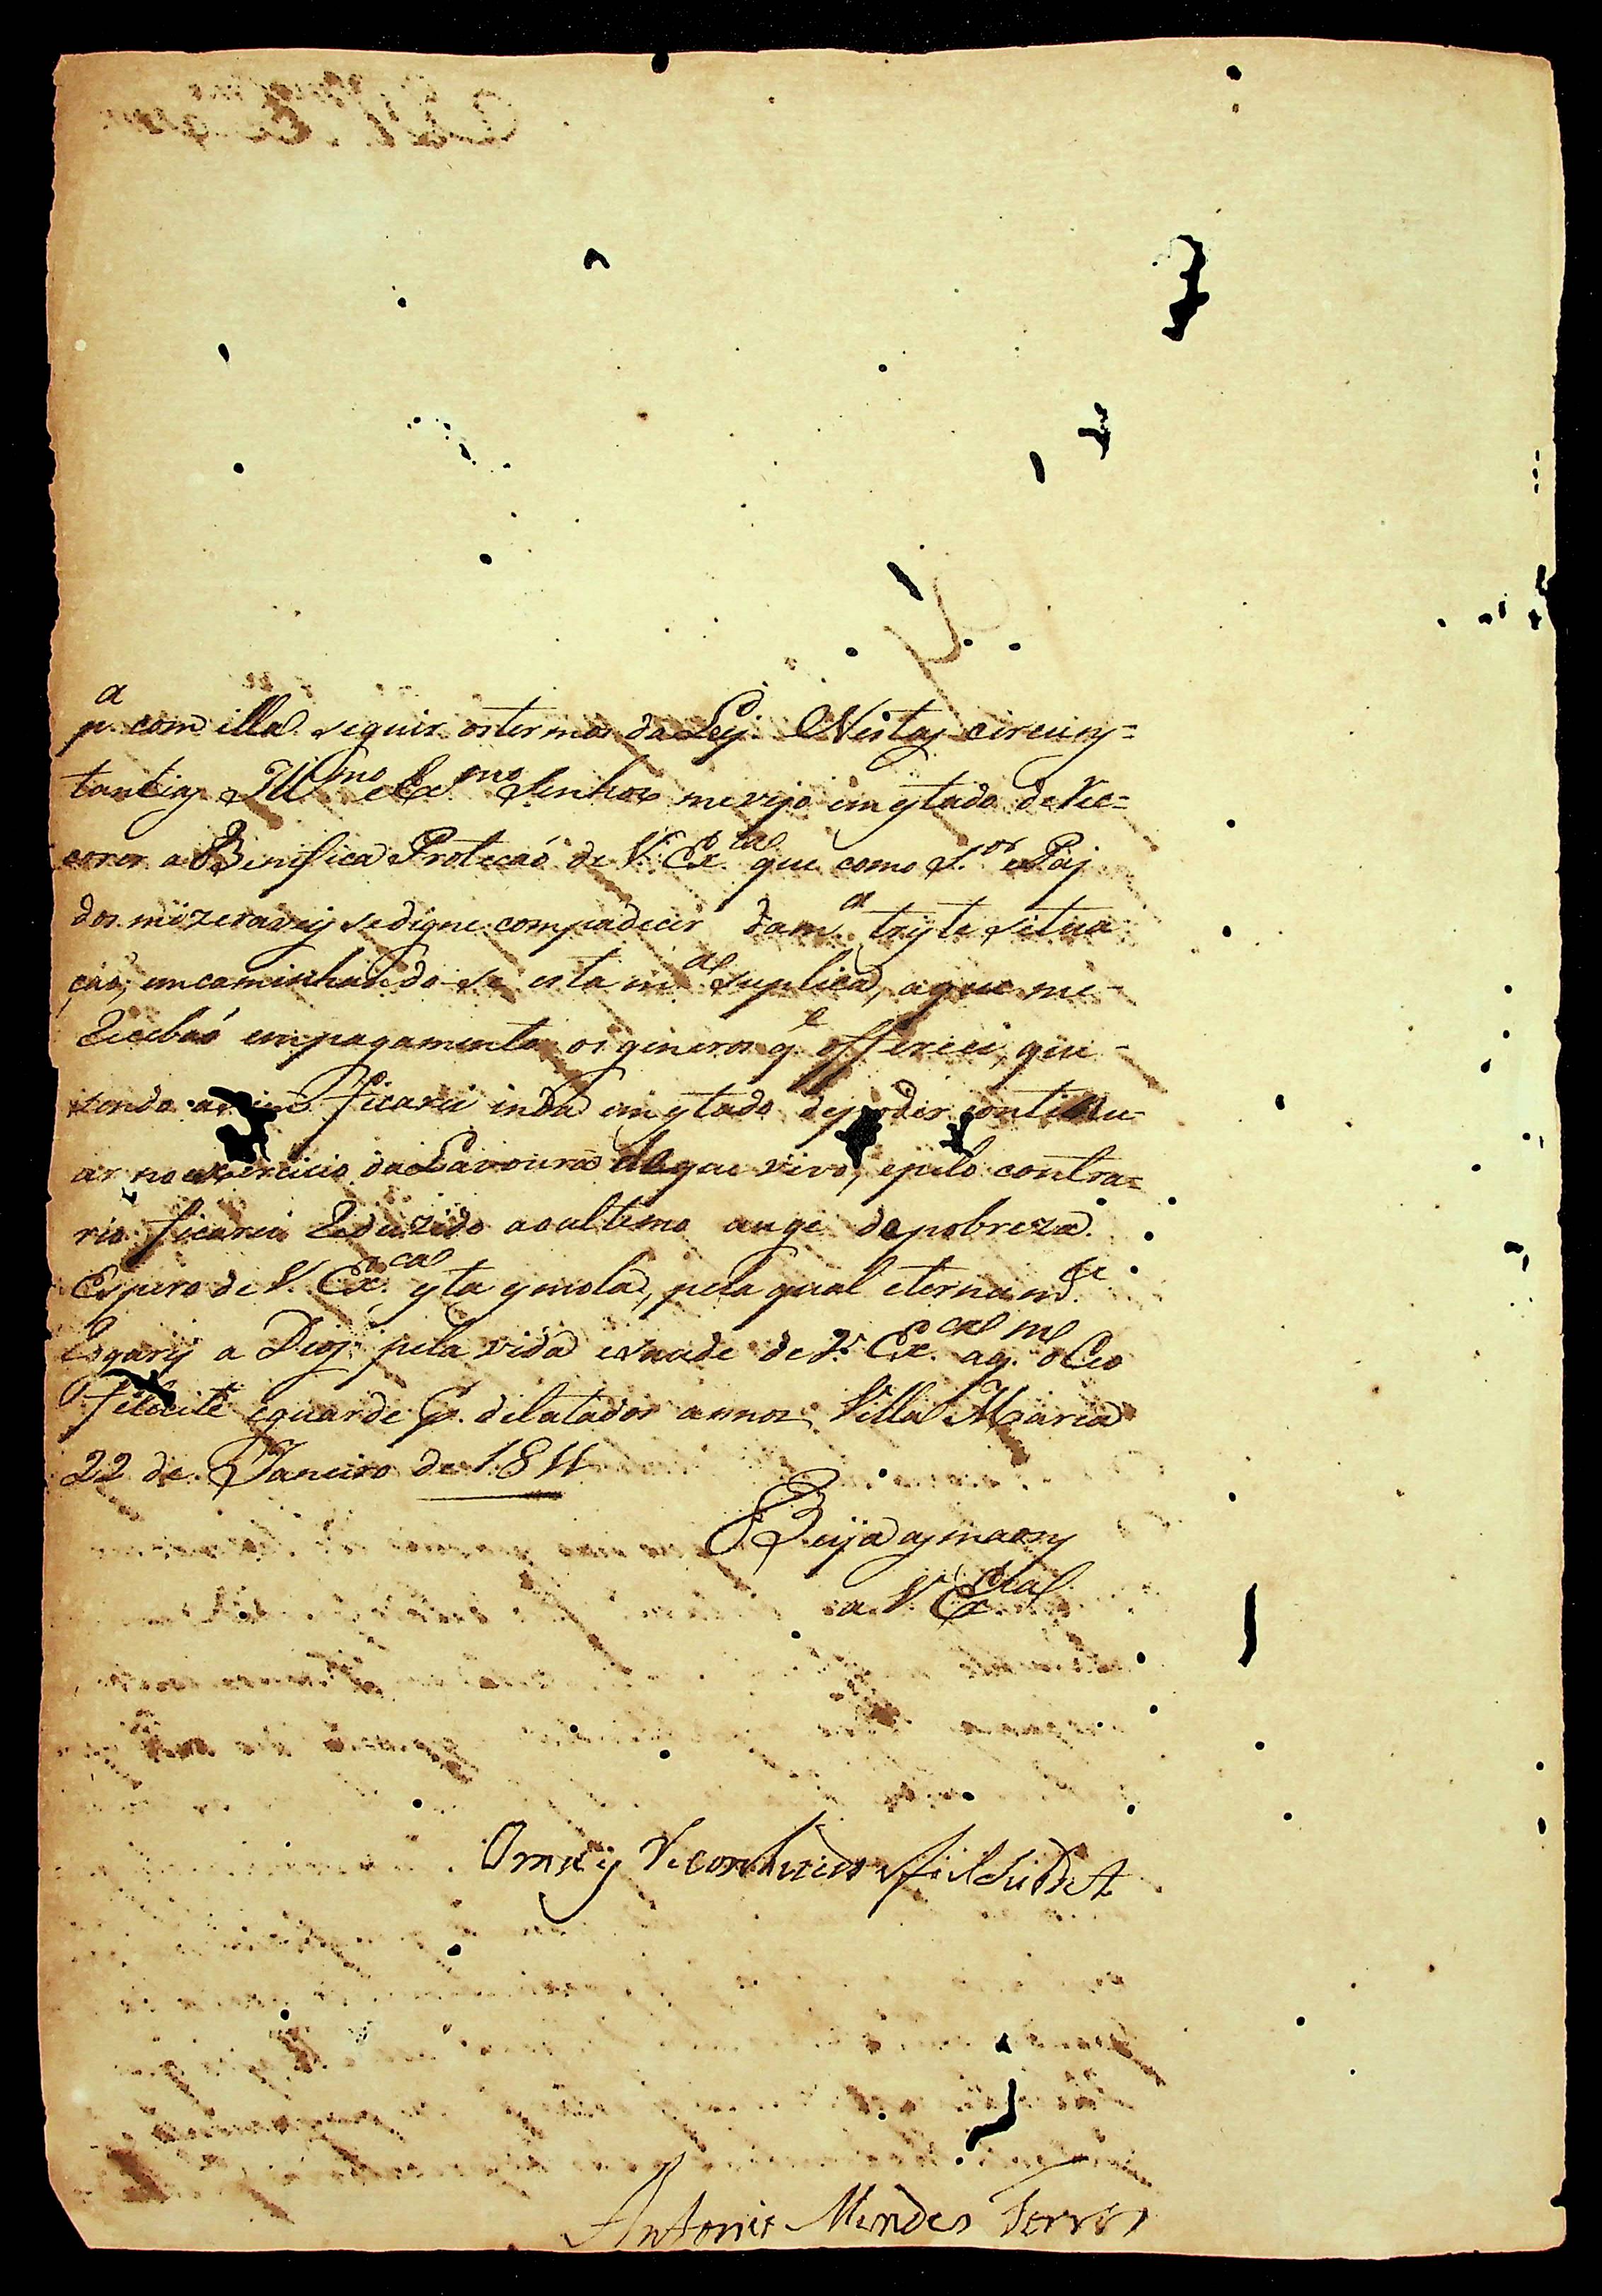 p.ª com illa seguir os termos da Ley. Nestas circuns=
tantias Ill.mo e Ex.mo Senhor me vejo em estado de rec=
corer a Benifica Protecaó de V. Ex.cia que como S.or e Paj
dos mizeraveis se digne compadecer da m.ª triste situa
çaó, emcaminhando-se esta m.ª suplica, a que me
recebaó em pagamento os gineros q.e offereci, que
sendo assim ficarei inda em estado de poder continu-
ar no exercicio da Lavoura de que vivo, e pelo contra=
rio ficarei reduzido ao ultimo auge da pobreza.
Espero de V. Ex.cia esta esmola, pela qual eternam.te
rogarei a Deos pela vida e saude de V. Ex.cia a q.m o Ceo
felicite e guarde p. dilatados annos. Villa Maria
22 de Janeiro de 1811
Beija as maons
a V. Ex.cia
O mais reconhecido fiel
Antonio Mendes Ferros